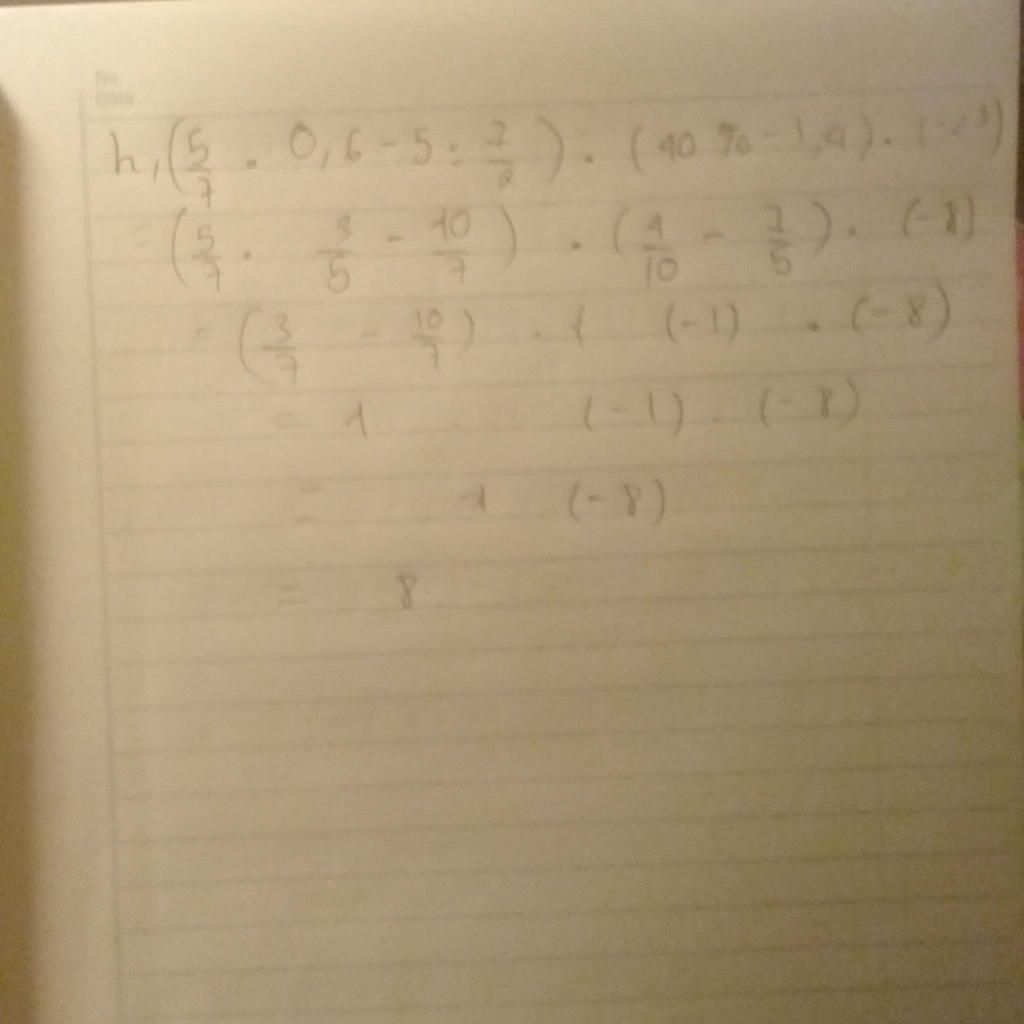 No.
Date
h, (5/7 . 0,6 - 5 : 7/2) . (40 % - 1,4) .
= (5/7 . 3/5 - 10/7) . (4/10 - 7/5) . (-8)
= (3/7 - 10/7) . ( (-1) . (-8)
= 1 (-1) . (-8)
= 1 (-8)
= 8